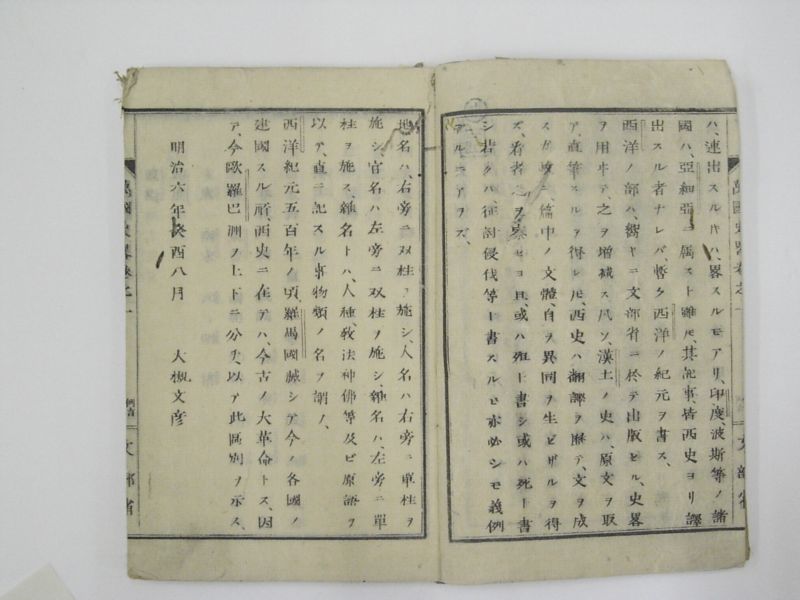 ハ、連出スルキハ、畧スルモアリ、印度、波斯等ノ諸
國ハ、亞細亞ニ屬スト雖モ、其記事、皆西史ヨリ譯
出スル者ナレバ、暫ク西洋ノ紀元ヲ書ス、
西洋ノ部ハ、嚮キニ文部省ニ於テ出版セル、史畧
ヲ用ヰテ、之ヲ増減ス、凡ソ、漢土ノ史ハ、原文ヲ取
ヲ、直筆スルヲ得レ𪜈、西史ハ翻譯ヲ歴テ、文ヲ成
スガ故ニ、篇中ノ文體、自ヲ異同ヲ生ゼザルヲ得
ズ、看者之ヲ察セヨ、且、或ハ殂ト書シ、或ハ死ト書
シ、若クハ、征討侵伐等ト書スルモ、亦必シモ義例
アルニアラズ、
地名ハ、右旁ニ双柱ヲ施シ、人名ハ右旁ニ單柱ヲ
施シ、官名ハ左旁ニ双柱ヲ施シ、雜名ハ、左旁ニ單
柱ヲ施ス、雜名トハ、人種、敎法神佛等、及ビ原語ヲ
以テ、直ニ記スル事物類ノ名ヲ謂フ、
西洋紀元五百年ノ頃、羅馬國滅シテ今ノ各國ノ
建國スル所、西史ニ在テハ、今古ノ大革命トス、因
テ、今歐羅巴洲ヲ上下ニ分チ、以テ此區別ヲ示ス、
明治六年癸酉八月 大槻文彦
萬國史畧卷之一
例言
文部省